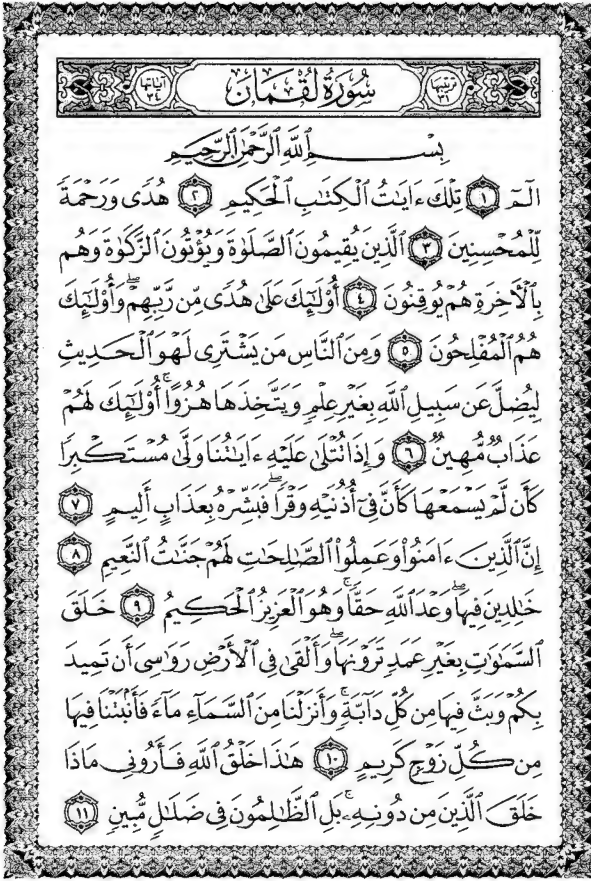 ترتيبها ٣١ سُورَةُ لُقْمَانَ آياتها ٣٤
بِسْمِ ٱللَّهِ ٱلرَّحْمَٰنِ ٱلرَّحِيمِ
الٓمٓ ١ تِلْكَ ءَايَٰتُ ٱلْكِتَٰبِ ٱلْحَكِيمِ ٢ هُدًى وَرَحْمَةً
لِّلْمُحْسِنِينَ ٣ ٱلَّذِينَ يُقِيمُونَ ٱلصَّلَوٰةَ وَيُؤْتُونَ ٱلزَّكَوٰةَ وَهُم
بِٱلْأَخِرَةِ هُمْ يُوقِنُونَ ٤ أُو۟لَٰٓئِكَ عَلَىٰ هُدًى مِّن رَّبِّهِمْ ۖ وَأُو۟لَٰٓئِكَ
هُمُ ٱلْمُفْلِحُونَ ٥ وَمِنَ ٱلنَّاسِ مَن يَشْتَرِى لَهْوَ ٱلْحَدِيثِ
لِيُضِلَّ عَن سَبِيلِ ٱللَّهِ بِغَيْرِ عِلْمٍ وَيَتَّخِذَهَا هُزُوًا ۚ أُو۟لَٰٓئِكَ لَهُمْ
عَذَابٌ مُّهِينٌ ٦ وَإِذَا تُتْلَىٰ عَلَيْهِ ءَايَٰتُنَا وَلَّىٰ مُسْتَكْبِرًا
كَأَن لَّمْ يَسْمَعْهَا كَأَنَّ فِىٓ أُذُنَيْهِ وَقْرًا ۖ فَبَشِّرْهُ بِعَذَابٍ أَلِيمٍ ٧
إِنَّ ٱلَّذِينَ ءَامَنُوا۟ وَعَمِلُوا۟ ٱلصَّٰلِحَٰتِ لَهُمْ جَنَّٰتُ ٱلنَّعِيمِ ٨
خَٰلِدِينَ فِيهَا ۖ وَعْدَ ٱللَّهِ حَقًّا ۚ وَهُوَ ٱلْعَزِيزُ ٱلْحَكِيمُ ٩ خَلَقَ
ٱلسَّمَٰوَٰتِ بِغَيْرِ عَمَدٍ تَرَوْنَهَا ۖ وَأَلْقَىٰ فِى ٱلْأَرْضِ رَوَٰسِىَ أَن تَمِيدَ
بِكُمْ وَبَثَّ فِيهَا مِن كُلِّ دَآبَّةٍ ۚ وَأَنزَلْنَا مِنَ ٱلسَّمَآءِ مَآءً فَأَنۢبَتْنَا فِيهَا
مِن كُلِّ زَوْجٍ كَرِيمٍ ١٠ هَٰذَا خَلْقُ ٱللَّهِ فَأَرُونِى مَاذَا
خَلَقَ ٱلَّذِينَ مِن دُونِهِۦ ۚ بَلِ ٱلظَّٰلِمُونَ فِى ضَلَٰلٍ مُّبِينٍ ١١